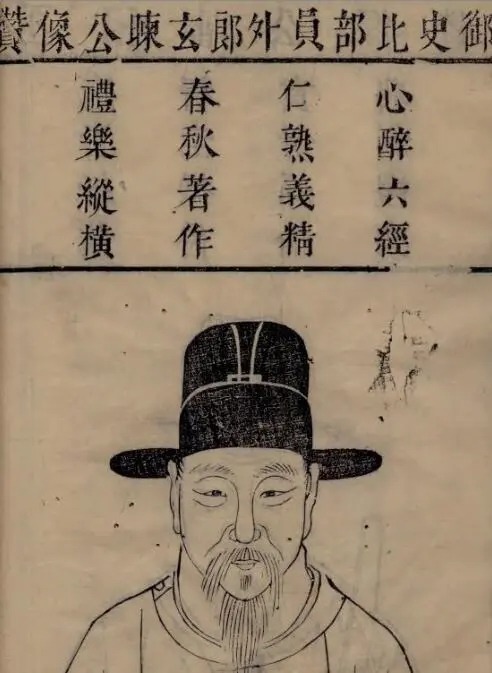 御史比部員外郎玄暕公像贊
心醉六經
仁熟義精
春秋著作
禮樂縱橫